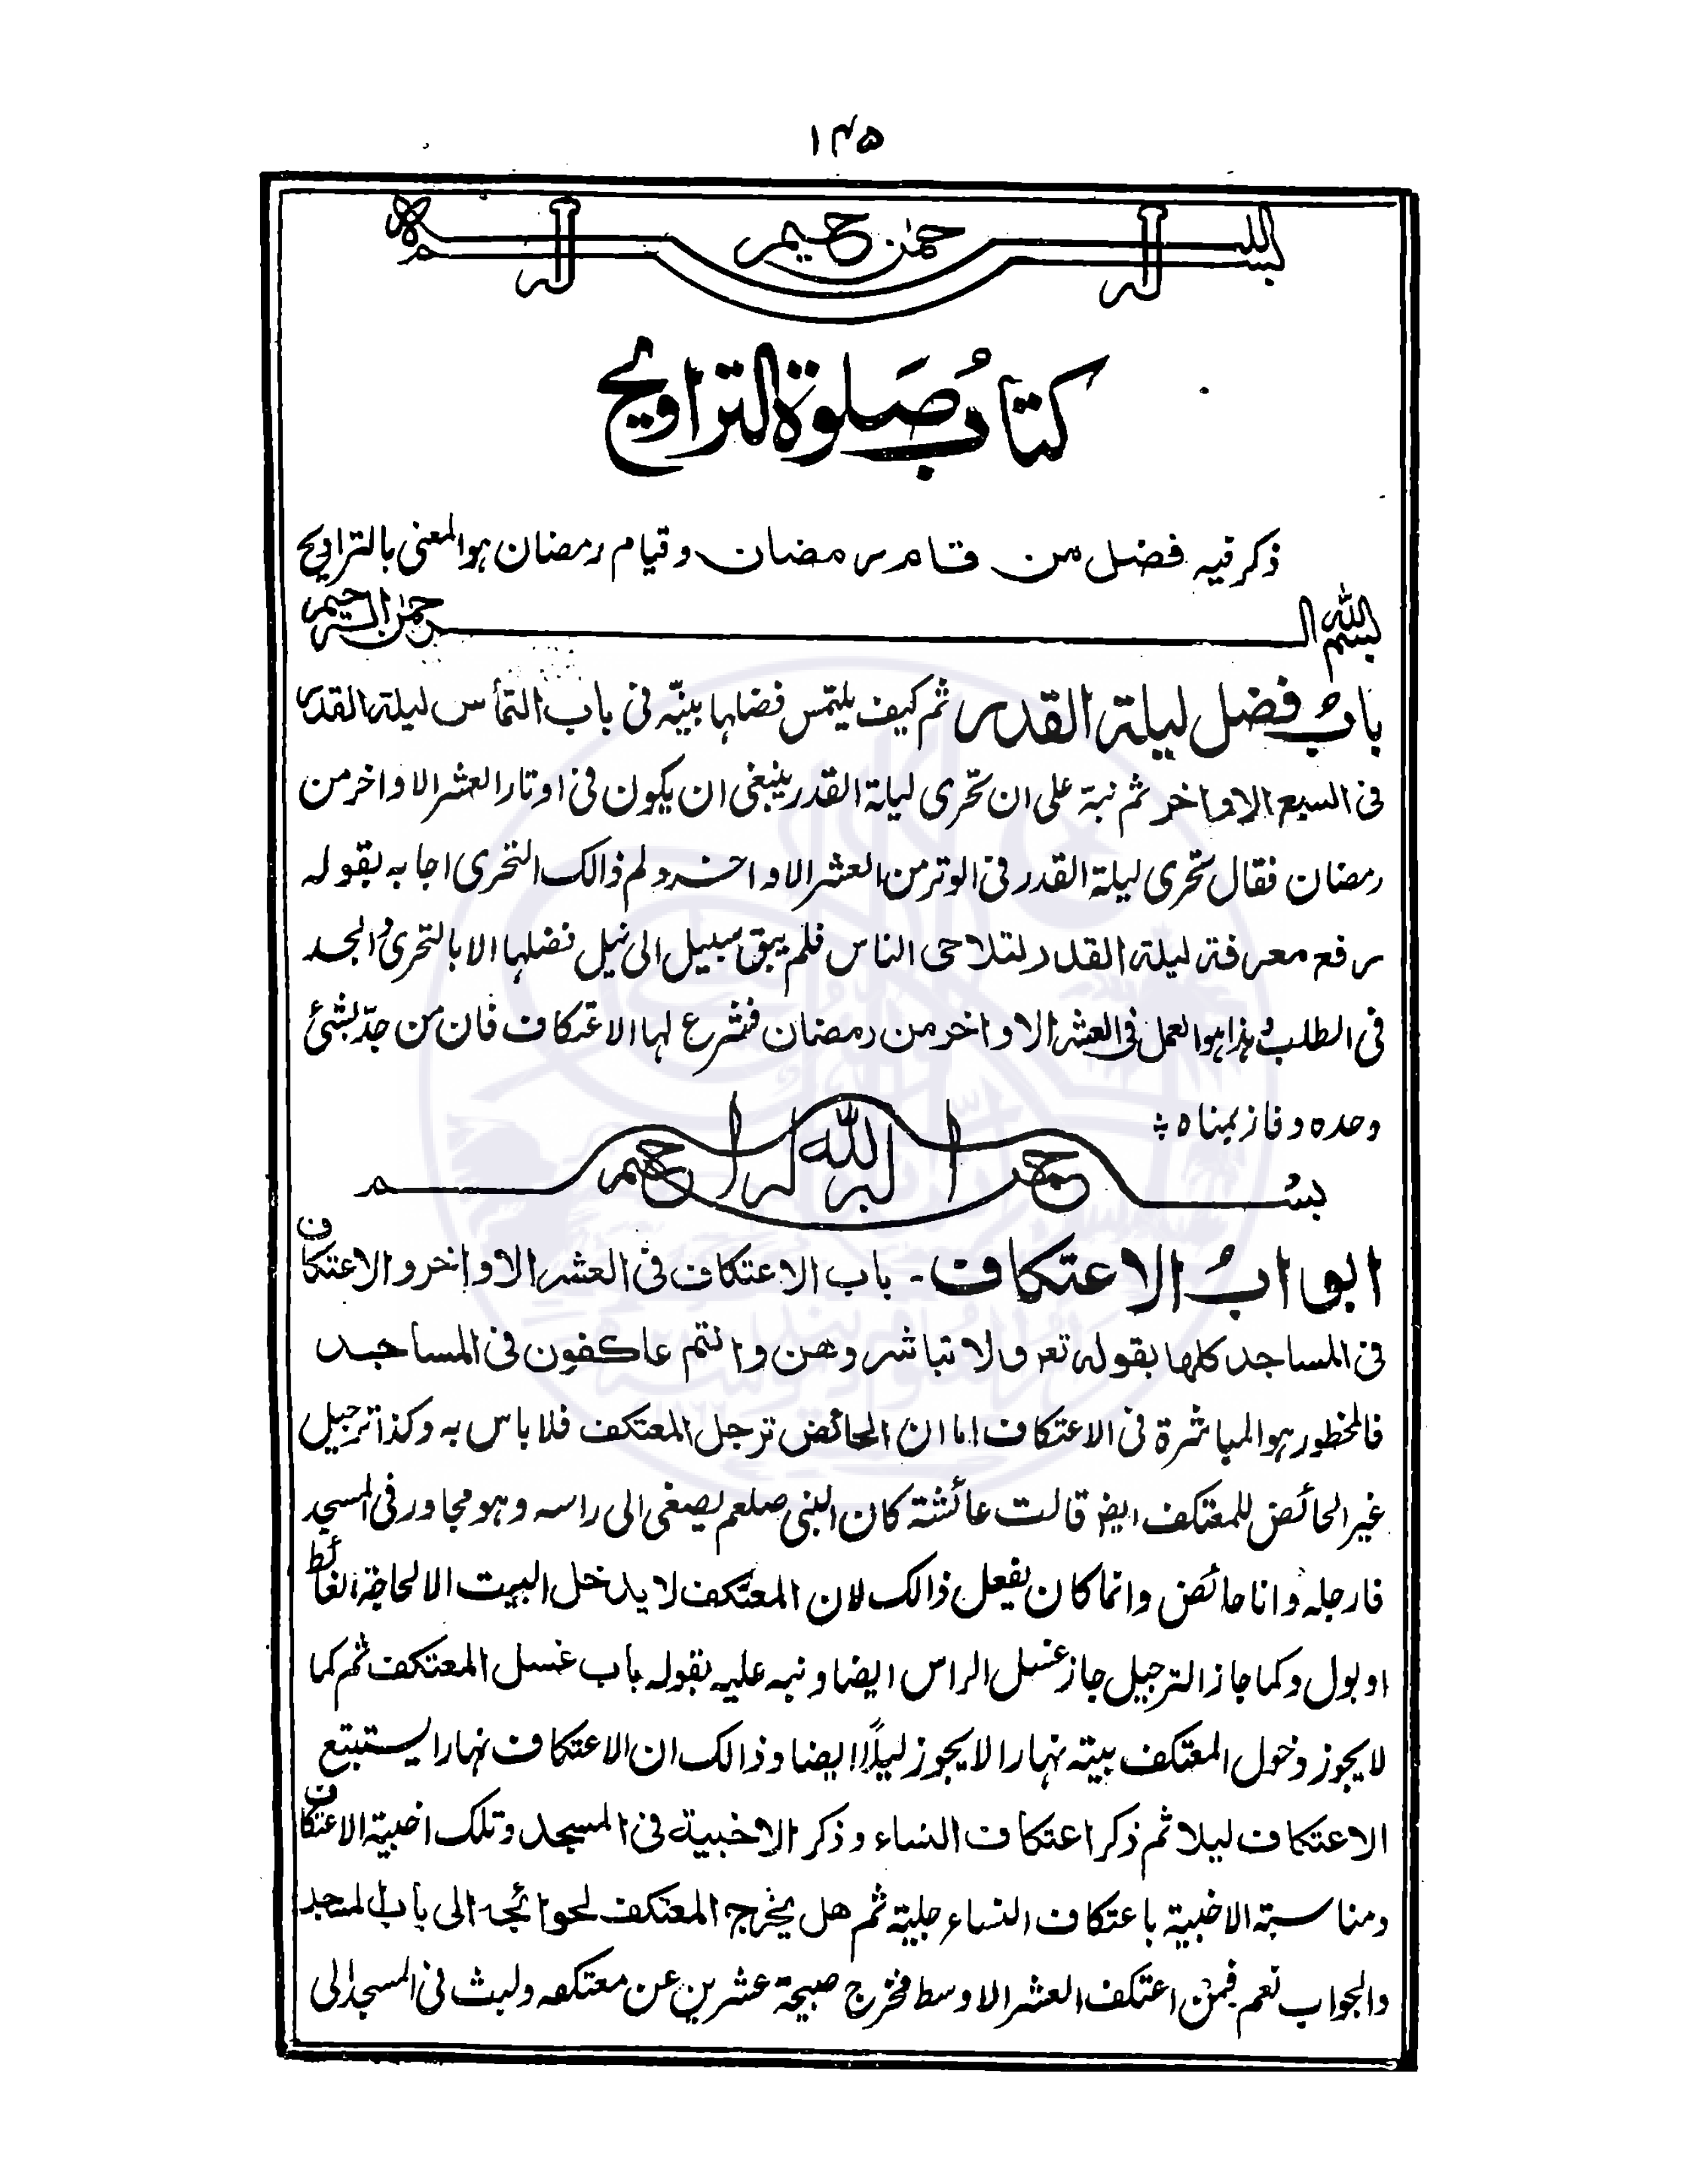 ۱۴۵
بسم الله الرحمن الرحيم
كتابُ صَلوة التراويح
ذكر فيه فضل من قام رمضان وقيام رمضان هو المعنى بالتراويح
بسم الله الرحمن الرحيم
بابُ فضل ليلة القدر ثم كيف يلتمس فضلها بينّه فى باب التمأس ليلة القدر
فى السبع الاواخر ثم نبّه على ان تحّرى ليلة القدر ينبغى ان يكون فى اوتار العشر الاواخر من
رمضان فقال تحّرى ليلة القدر فى الوتر من العشر الاواخر ولم ذالك التحرى اجابه بقوله
رفع معرفة ليلة القدر لتلاحى الناس فلم يبق سبيل الى نيل فضلها الا بالتحرى والجد
فى الطلب وهذا هو العمل فى العشر الاواخر من رمضان فشرع لها الاعتكاف فان من جدّ بشئ
وحده وفاز بمناه
بسم الله الرحمن الرحيم
ابوابُ الاعتكاف - باب الاعتكاف فى العشر الاواخر والاعتكاف
فى المساجد كلها بقوله تعو ولا تباشروهن وانتم عاكفون فى المساجد
فالمخطور هو المباشرة فى الاعتكاف اما ان الحائض ترجل المعتكف فلا باس به وكذا ترجيل
غير الحائض للمعتكف ايض قالت عائشة كان النبى صلعم يصغى الى راسه وهو مجاور فى المسجد
فارجله وانا حائض وانما كان يفعل ذالك لان المعتكف لا يدخل البيت الا لحاجة الغائط
او بول وكما جاز الترجيل جاز غسل الراس ايضا ونبه عليه بقوله باب غسل المعتكف ثم كما
لا يجوز دخول المعتكف بيته نهارا لا يجوز ليلاً ايضا وذالك ان الاعتكاف نهارا يستتبع
الاعتكاف ليلا ثم ذكر اعتكاف النساء وذكر الاخبية فى المسجد وتلك اخبية الاعتكاف
ومناسبة الاخبية باعتكاف النساء جلية ثم هل يخرج المعتكف لحوائجه الى باب المسجد
والجواب نعم فيمن اعتكف العشر الاوسط فخرج صبيحة عشرين عن معتكفه ولبث فى المسجد الى